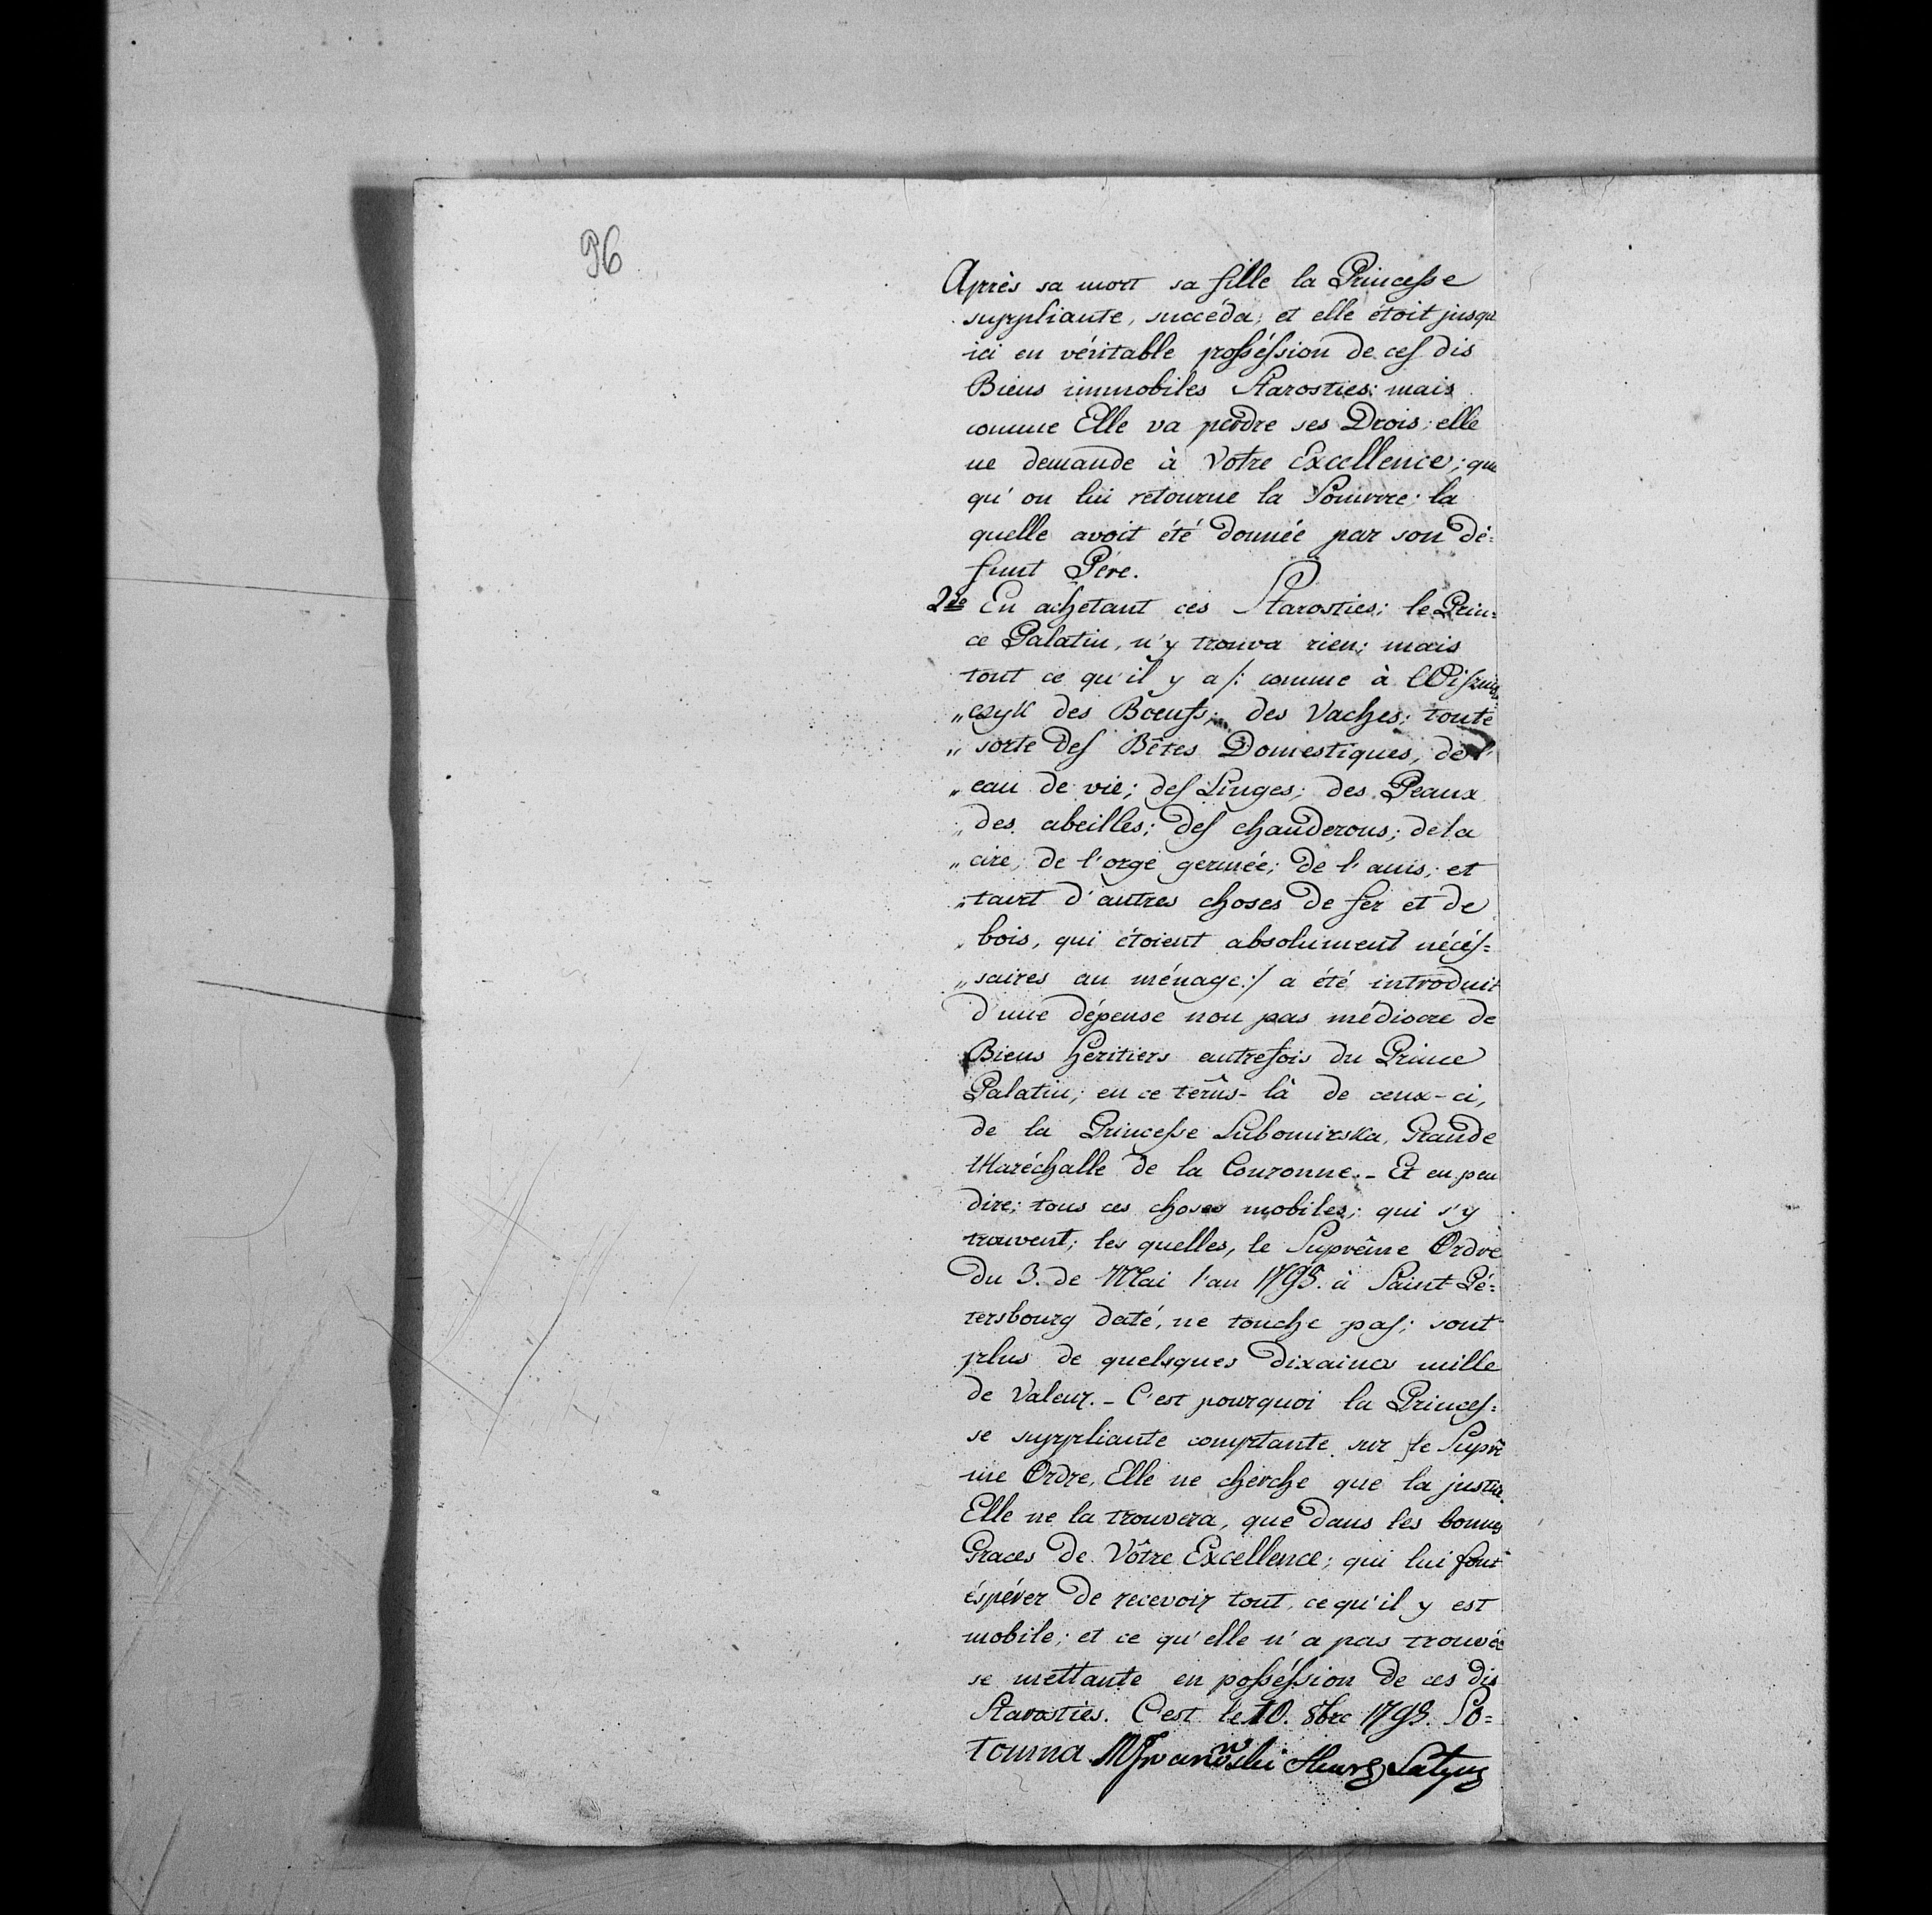 96
Après sa mort sa fille la Princesse
suppliante, succéda; et elle étoit jusqu'
ici en véritable posséssion de ces dis
Biens immobiles Starosties: mais
comme Elle va perdre ses Drois; elle
ne demande à Votre Excellence; que
qu'on lui retourne la la
quelle avoit été donnée par son dé=
funt Pére.
2de En achetant ces Starosties; le Prin=
ce Palatin, n'y trouva rien; mais
tout ce qu'il y a /: comme à
„ czyk des Boeufs; des Vaches; toute
„ sorte des Bêtes Domestiques, de l'
„ eau de vie; des Linges; des Peaux
„ des abeilles; des chauderons; de la
„ cire, de l'orge germée; de l'anis; et
„ tant d'autres choses de fer et de
„ bois, qui étoient absolument nécés=
„ saires au ménage :/ a été introduit
d'une dépense non pas médiocre de
Biens héritiers autrefois du Prince
Palatin; en ce tems-là de ceux-ci,
de la Princesse Lubomirska, Grande
Maréchalle de la Couronne. - Et en peu
dire; tous ces choses mobiles; qui s'y
trouvent; les quelles, le Suprême Ordre
du 3. de Mai l'an 1795. à Saint Pé=
tersbourg daté, ne touche pas; sont
plus de quelsques dixaines mille
de Valeur. - C'est pourquoi la Princes=
se suppliante comptante sur le Suprê
me Ordre, Elle ne cherche que la justice.
Elle ne la trouvera, que dans les bonnes
Graces de Vôtre Excellence; qui lui font
éspérer de recevoir tout ce qu'il y est
mobile; et ce qu'elle n'a pas trouvée
se mettante en posséssion de ces dis
Starosties. C'est le 10. 8bre 1795. So=
touma